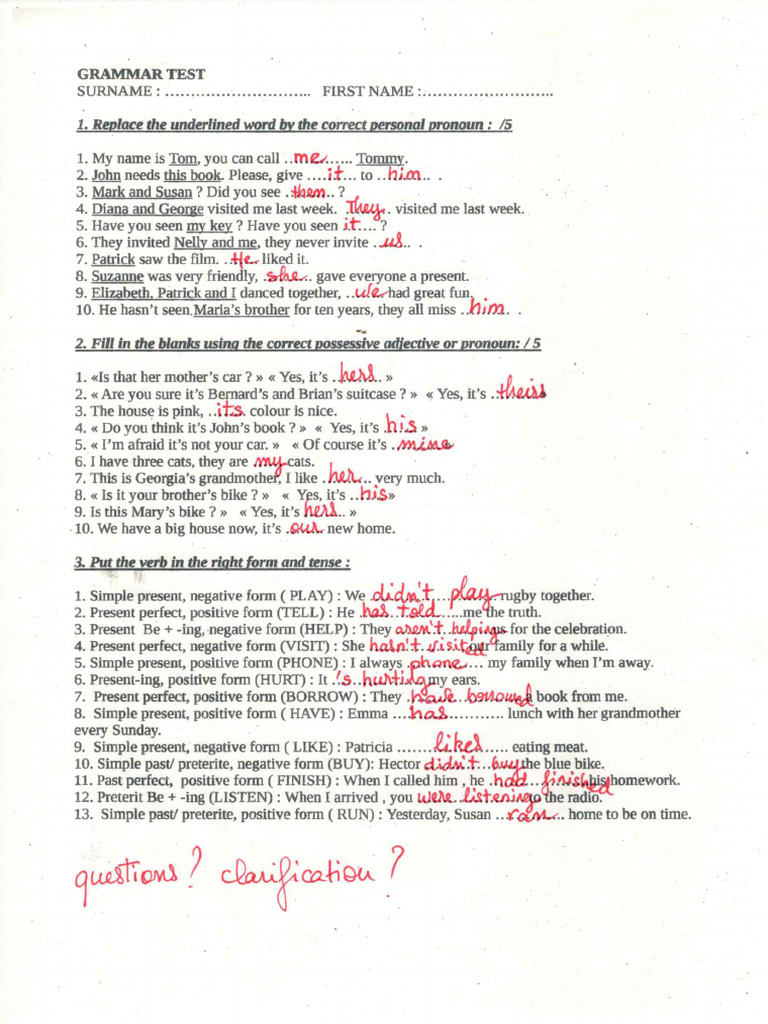 GRAMMAR TEST
SURNAME : ............................. FIRST NAME :..........................
1. Replace the underlined word by the correct personal pronoun : /5
1. My name is Tom, you can call ..me...... Tommy.
2. John needs this book. Please, give ....it... to ..him.. .
3. Mark and Susan ? Did you see .them.. ?
4. Diana and George visited me last week. .They.. visited me last week.
5. Have you seen my key ? Have you seen it.... ?
6. They invited Nelly and me, they never invite ..us.. .
7. Patrick saw the film. ..He liked it.
8. Suzanne was very friendly, .she.. gave everyone a present.
9. Elizabeth, Patrick and I danced together, ..we had great fun.
10. He hasn't seen Maria's brother for ten years, they all miss ..him. .
2. Fill in the blanks using the correct possessive adjective or pronoun: / 5
1. «Is that her mother's car ? » « Yes, it's ..hers.. »
2. « Are you sure it's Bernard's and Brian's suitcase ? » « Yes, it's ..theirs »
3. The house is pink, ..its. colour is nice.
4. « Do you think it's John's book ? » « Yes, it's .his »
5. « I'm afraid it's not your car. » « Of course it's ..mine
6. I have three cats, they are .my cats.
7. This is Georgia's grandmother, I like .her... very much.
8. « Is it your brother's bike ? » « Yes, it's ..his»
9. Is this Mary's bike ? » « Yes, it's hers.. »
10. We have a big house now, it's .our new home.
3. Put the verb in the right form and tense :
1. Simple present, negative form ( PLAY) : We didn't play rugby together.
2. Present perfect, positive form (TELL) : He .has told......me the truth.
3. Present Be + -ing, negative form (HELP) : They aren't helping us for the celebration.
4. Present perfect, negative form (VISIT) : She hasn't visited our family for a while.
5. Simple present, positive form (PHONE) : I always .phone.... my family when I'm away.
6. Present-ing, positive form (HURT) : It .'s hurting my ears.
7. Present perfect, positive form (BORROW) : They .have borrowed a book from me.
8. Simple present, positive form ( HAVE) : Emma ....has............ lunch with her grandmother
every Sunday.
9. Simple present, negative form ( LIKE) : Patricia ........likes..... eating meat.
10. Simple past/ preterite, negative form (BUY): Hector didn't buy the blue bike.
11. Past perfect, positive form ( FINISH) : When I called him , he had finished his homework.
12. Preterit Be + -ing (LISTEN) : When I arrived , you were listening to the radio.
13. Simple past/ preterite, positive form ( RUN) : Yesterday, Susan ..ran... home to be on time.
questions? clarification?